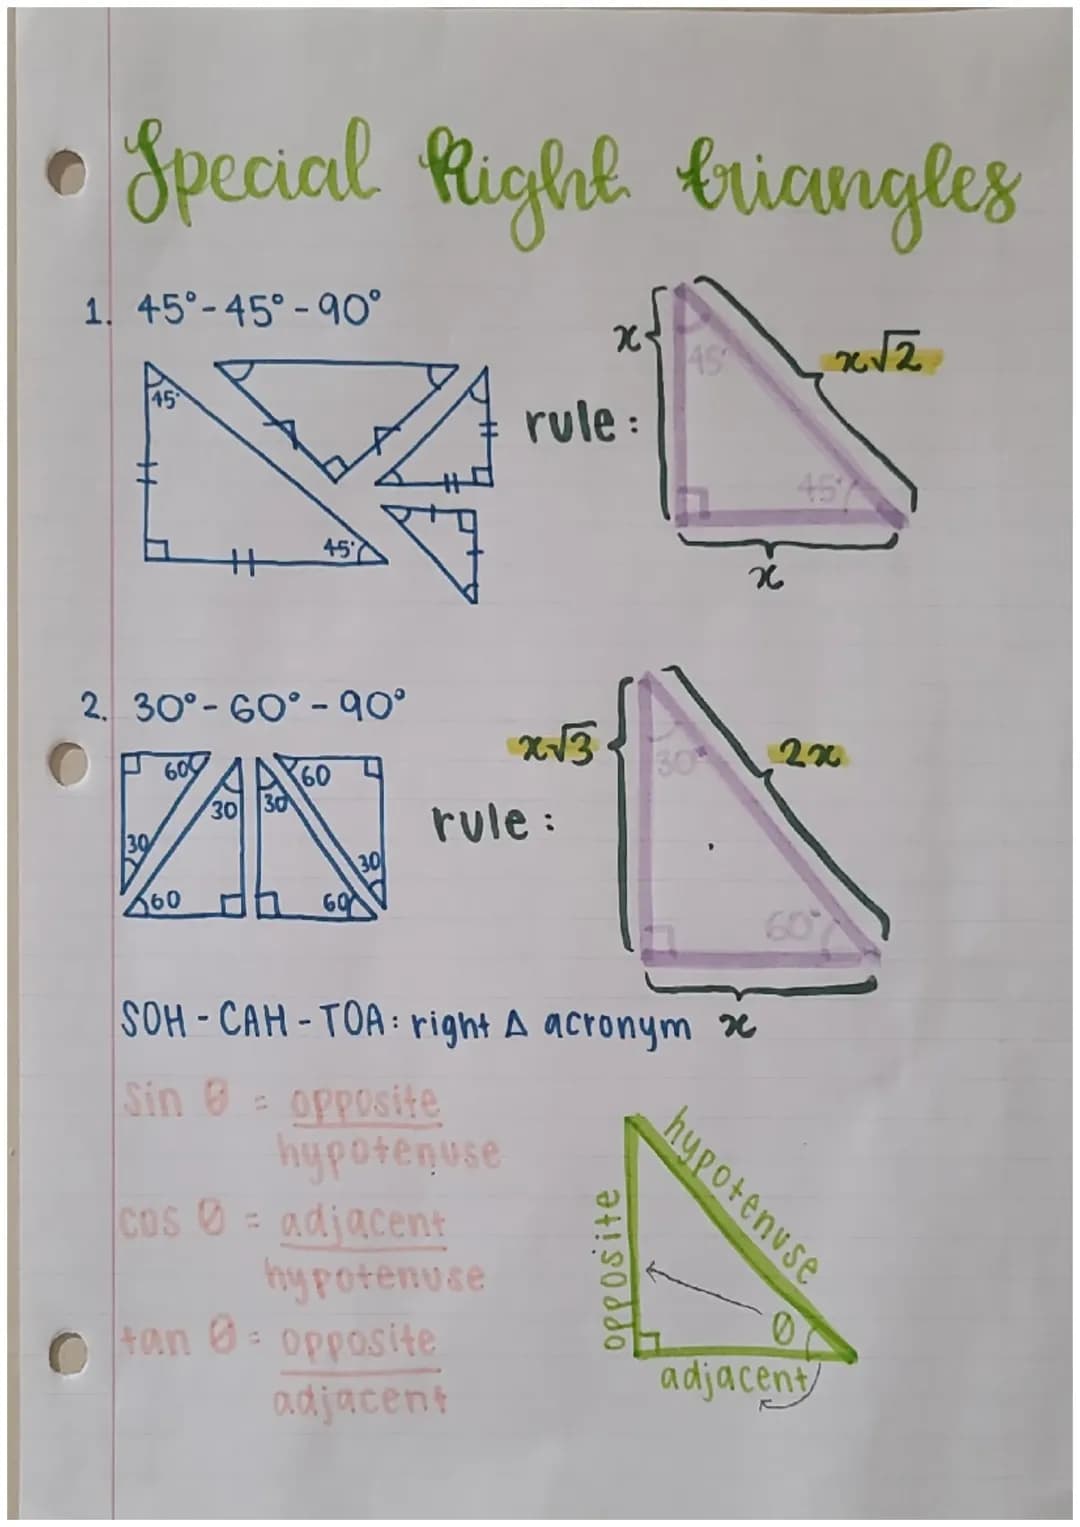 Special Right triangles
1. 45°-45°-90°
45°
45°
rule:
x
45°
x√2
45°
x
2. 30°-60°-90°
60
30
30
60
30
60
60
30
rule:
x√3
30°
2x
60°
x
SOH-CAH-TOA: right Δ acronym
sin θ = opposite
hypotenuse
cos θ = adjacent
hypotenuse
tan θ = opposite
adjacent
hypotenuse
opposite
θ
adjacent